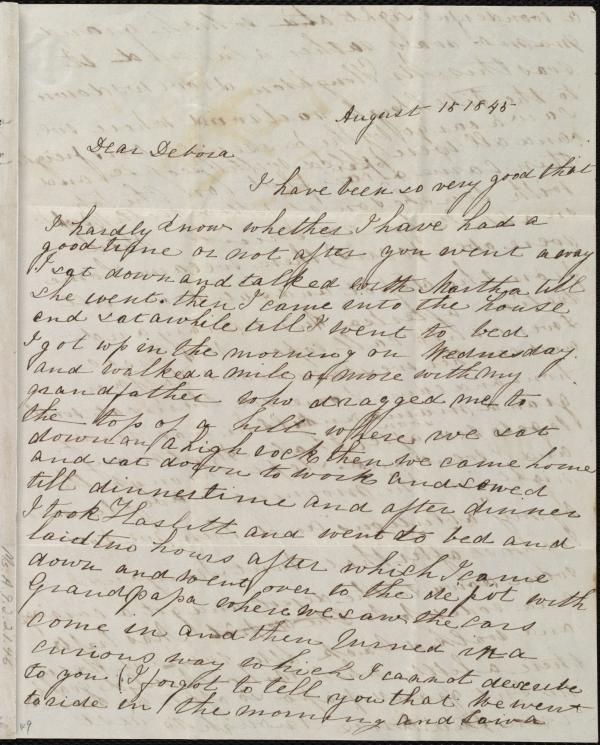 August 15 1845
Dear Debora
I have been so very good that
I hardly know whether I have had a
good time or not after you went away
I sat down and talked with Martha till
she went. then I came into the house
and sat awhile till I went to bed
I got up in the morning on Wednesday
and walked a mile or more with my
grandfather who dragged me to
the top of a hill where we sat
down on a high rock then we came home
and sat down to work and sewed
till dinnertime and after dinner
I took Haslitt and went to bed and
laid two hours after which I came
down and went over to the depot with
Grandpapa where we saw the cars
come in and then turned in a
curious way which I cannot describe
to you (I forgot to tell you that we went
to ride in the morning and saw a